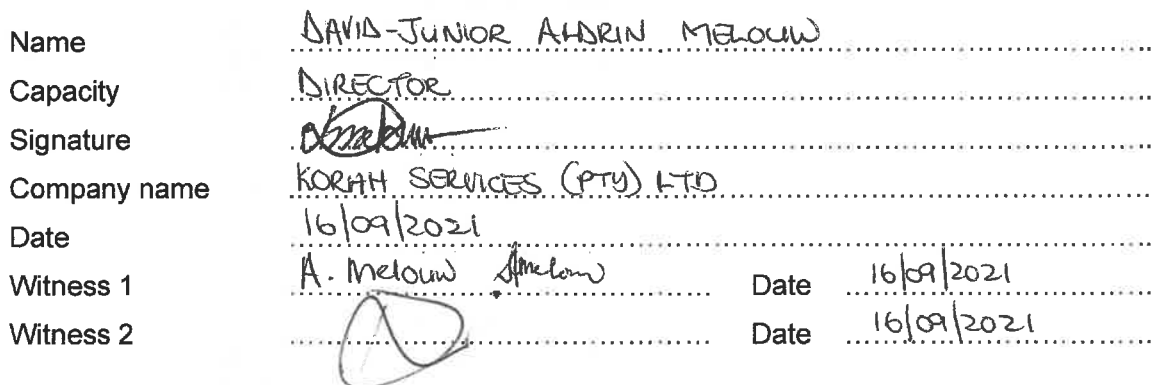 Name DAVID-JUNIOR ALDRIN MELOUW
Capacity DIRECTOR
Signature
Company name KORAH SERVICES (PTY) LTD
Date 16/09/2021
Witness 1 A. Melouw Date 16/09/2021
Witness 2 Date 16/09/2021